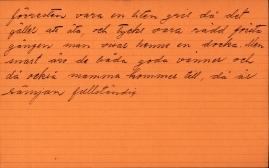 förresten vara en liten gris då det
gäller att äta, och tycks vara rädd första
gången man visar henne en docka. Men
snart äro de båda goda vänner och
då också mamma kommer till, då är
familjen fullständig